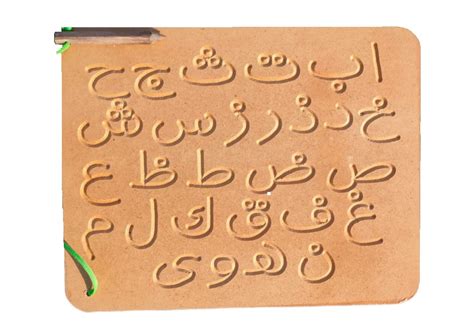 ا ب ت ث ج ح
خ د ذ ر ز س ش
ص ض ط ط ظ ع
غ ف ق ك ل م
ن ه و ى